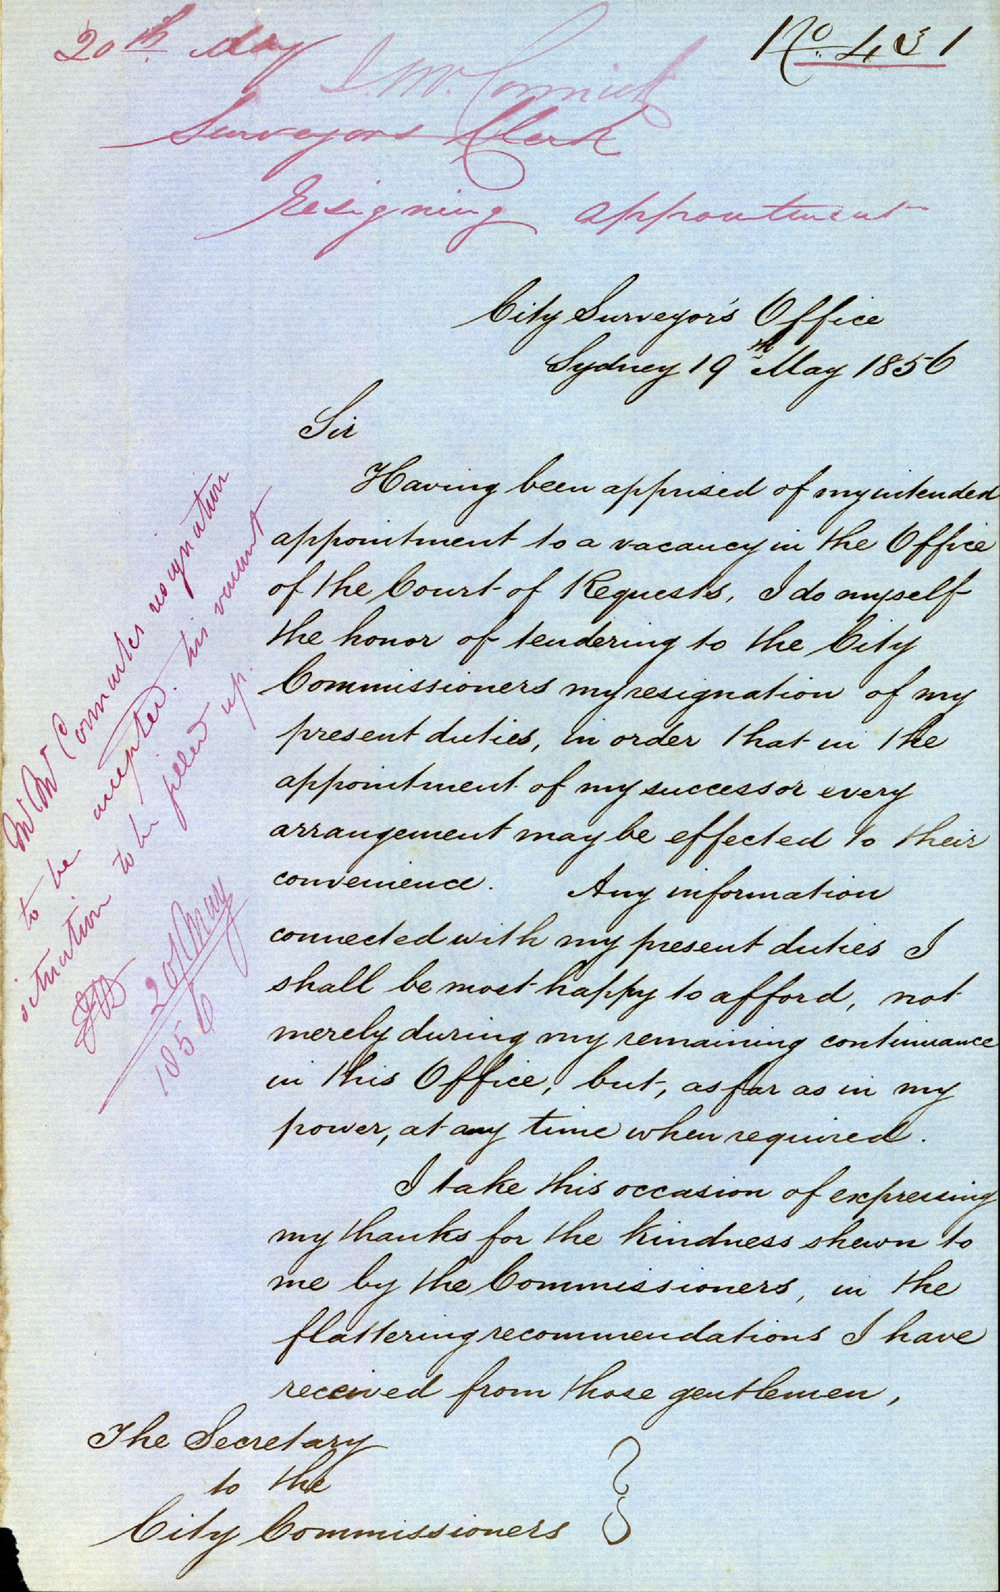 20th May
No. 431
J. McCormick
Surveyors Clerk
resigning appointment
City Surveyor's Office
Sydney 19th May 1856
Sir
Having been apprised of my intended
appointment to a vacancy in the Office
of the Court of Requests, I do myself
the honor of tendering to the City
Commissioners my resignation of my
present duties, in order that in the
appointment of my successor every
arrangement may be effected to their
convenience. Any information
connected with my present duties I
shall be most happy to afford, not
merely during my remaining continuance
in this Office, but, as far as in my
power, at any time when required.
I take this occasion of expressing
my thanks for the kindness shewn to
me by the Commissioners, in the
flattering recommendations I have
received from those gentlemen,
The Secretary
to the
City Commissioners
Mr McCormicks resignation
to be accepted. his vacant
situation to be filled up
20/May
1856